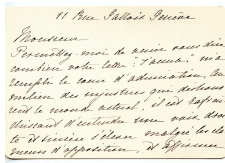 11 Rue Gallois Genève
Monsieur
Permettez-moi de venir vous dire
combien votre lettre "J'accuse" m'a
rempli le cœur d'admiration. Au
milieu des injustices que
le monde actuel, il est rafraî-
chissant d'entendre une voix droi-
te et sincère s'élever malgré les clа-
meurs d'opposition, et affirmer